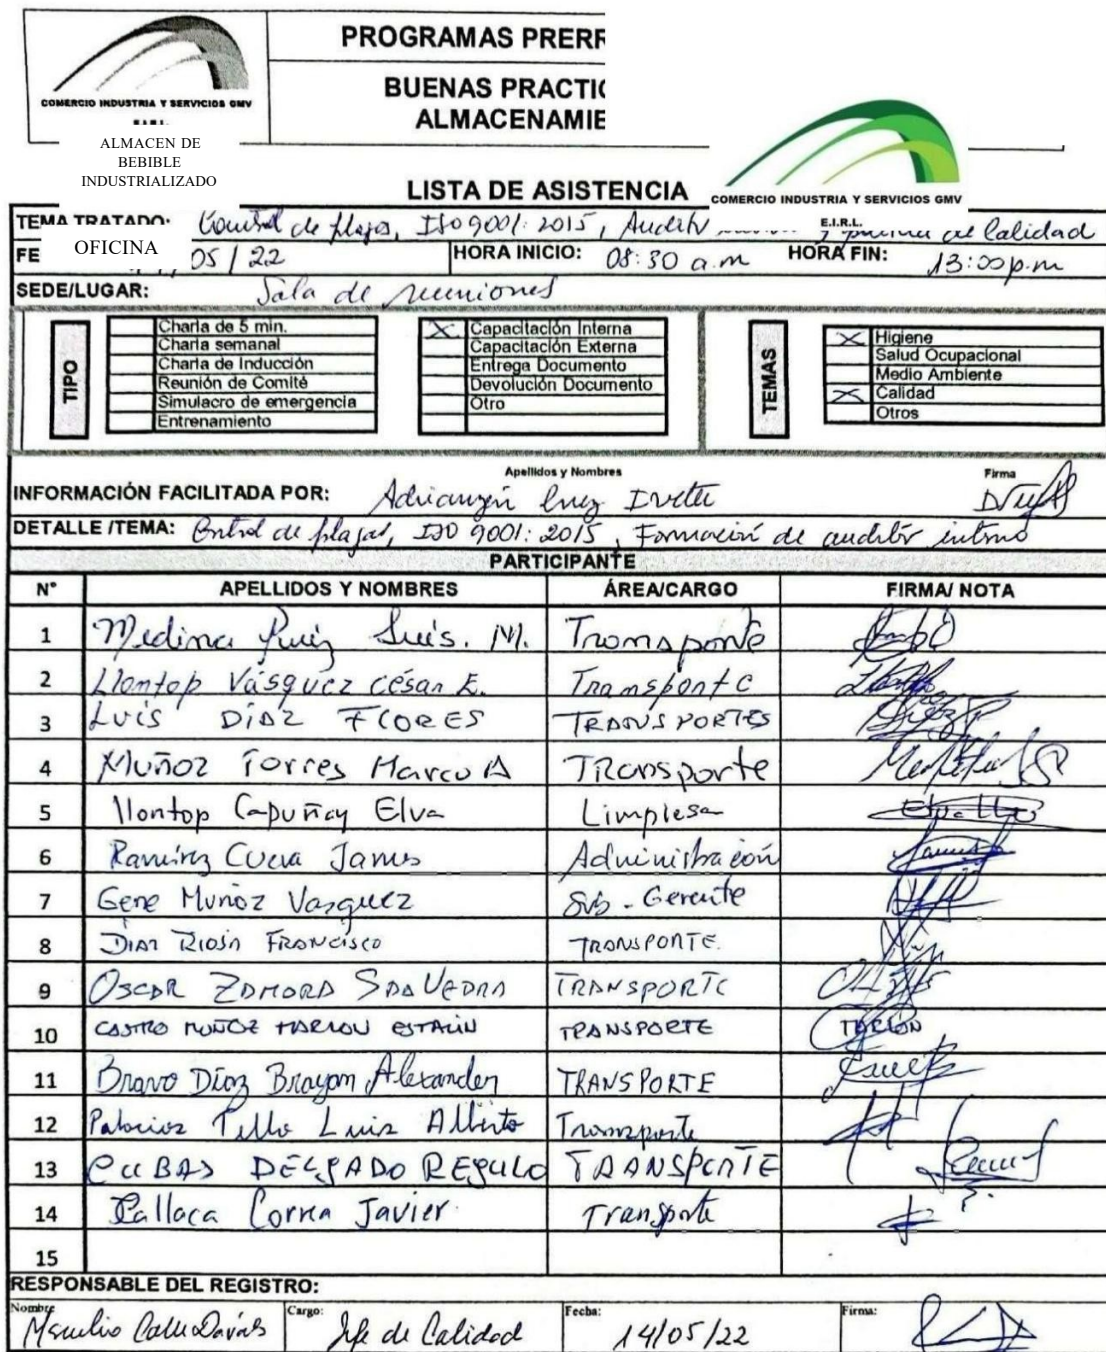 COMERCIO INDUSTRIA Y SERVICIOS GMV
E.I.R.L.
ALMACEN DE
BEBIBLE
INDUSTRIALIZADO
PROGRAMAS PRERR
BUENAS PRACTIC
ALMACENAMIE
COMERCIO INDUSTRIA Y SERVICIOS GMV
E.I.R.L.
LISTA DE ASISTENCIA
TEMA TRATADO: Control de plagas, ISO 9001:2015, Auditor de Calidad
OFICINA
FE 05/22 HORA INICIO: 08:30 a.m HORA FIN: 13:00 p.m
SEDE/LUGAR: Sala de reuniones
TIPO
Charla de 5 min.
Charla semanal
Charla de Inducción
Reunión de Comité
Simulacro de emergencia
Entrenamiento
X Capacitación Interna
Capacitación Externa
Entrega Documento
Devolución Documento
Otro
TEMAS
X Higiene
Salud Ocupacional
Medio Ambiente
X Calidad
Otros
Apellidos y Nombres Firma
INFORMACIÓN FACILITADA POR: Adrianzén Cruz Ivette
DETALLE /TEMA: Control de plagas, ISO 9001:2015, Formación de auditor interno
PARTICIPANTE
N° APELLIDOS Y NOMBRES ÁREA/CARGO FIRMA/ NOTA
1 Medina Ruiz Luis. M. Transporte
2 Llontop Vásquez César E. Transporte
3 LUIS DÍAZ FLORES TRANSPORTES
4 Muñoz Torres Marco A Transporte
5 Llontop Capuñay Elva Limpiesa
6 Ramírez Cueva James Administración
7 Gene Muñoz Vasquez Sub-Gerente
8 DIAZ FRANCISCO TRANSPORTE.
9 OSCAR ZAMORA SAAVEDRA TRANSPORTE
10 CASTRO MUÑOZ MARLON ESTALIN TRANSPORTE MARLON
11 Bravo Díaz Brayam Alexander TRANSPORTE
12 Palacios Tello Luis Alberto Transporte
13 CUBAS DELGADO REGULO TRANSPORTE
14 Callaca Correa Javier Transporte
15
RESPONSABLE DEL REGISTRO:
Nombre Calle Cargo: Jefe de Calidad Fecha: 14/05/22 Firma: